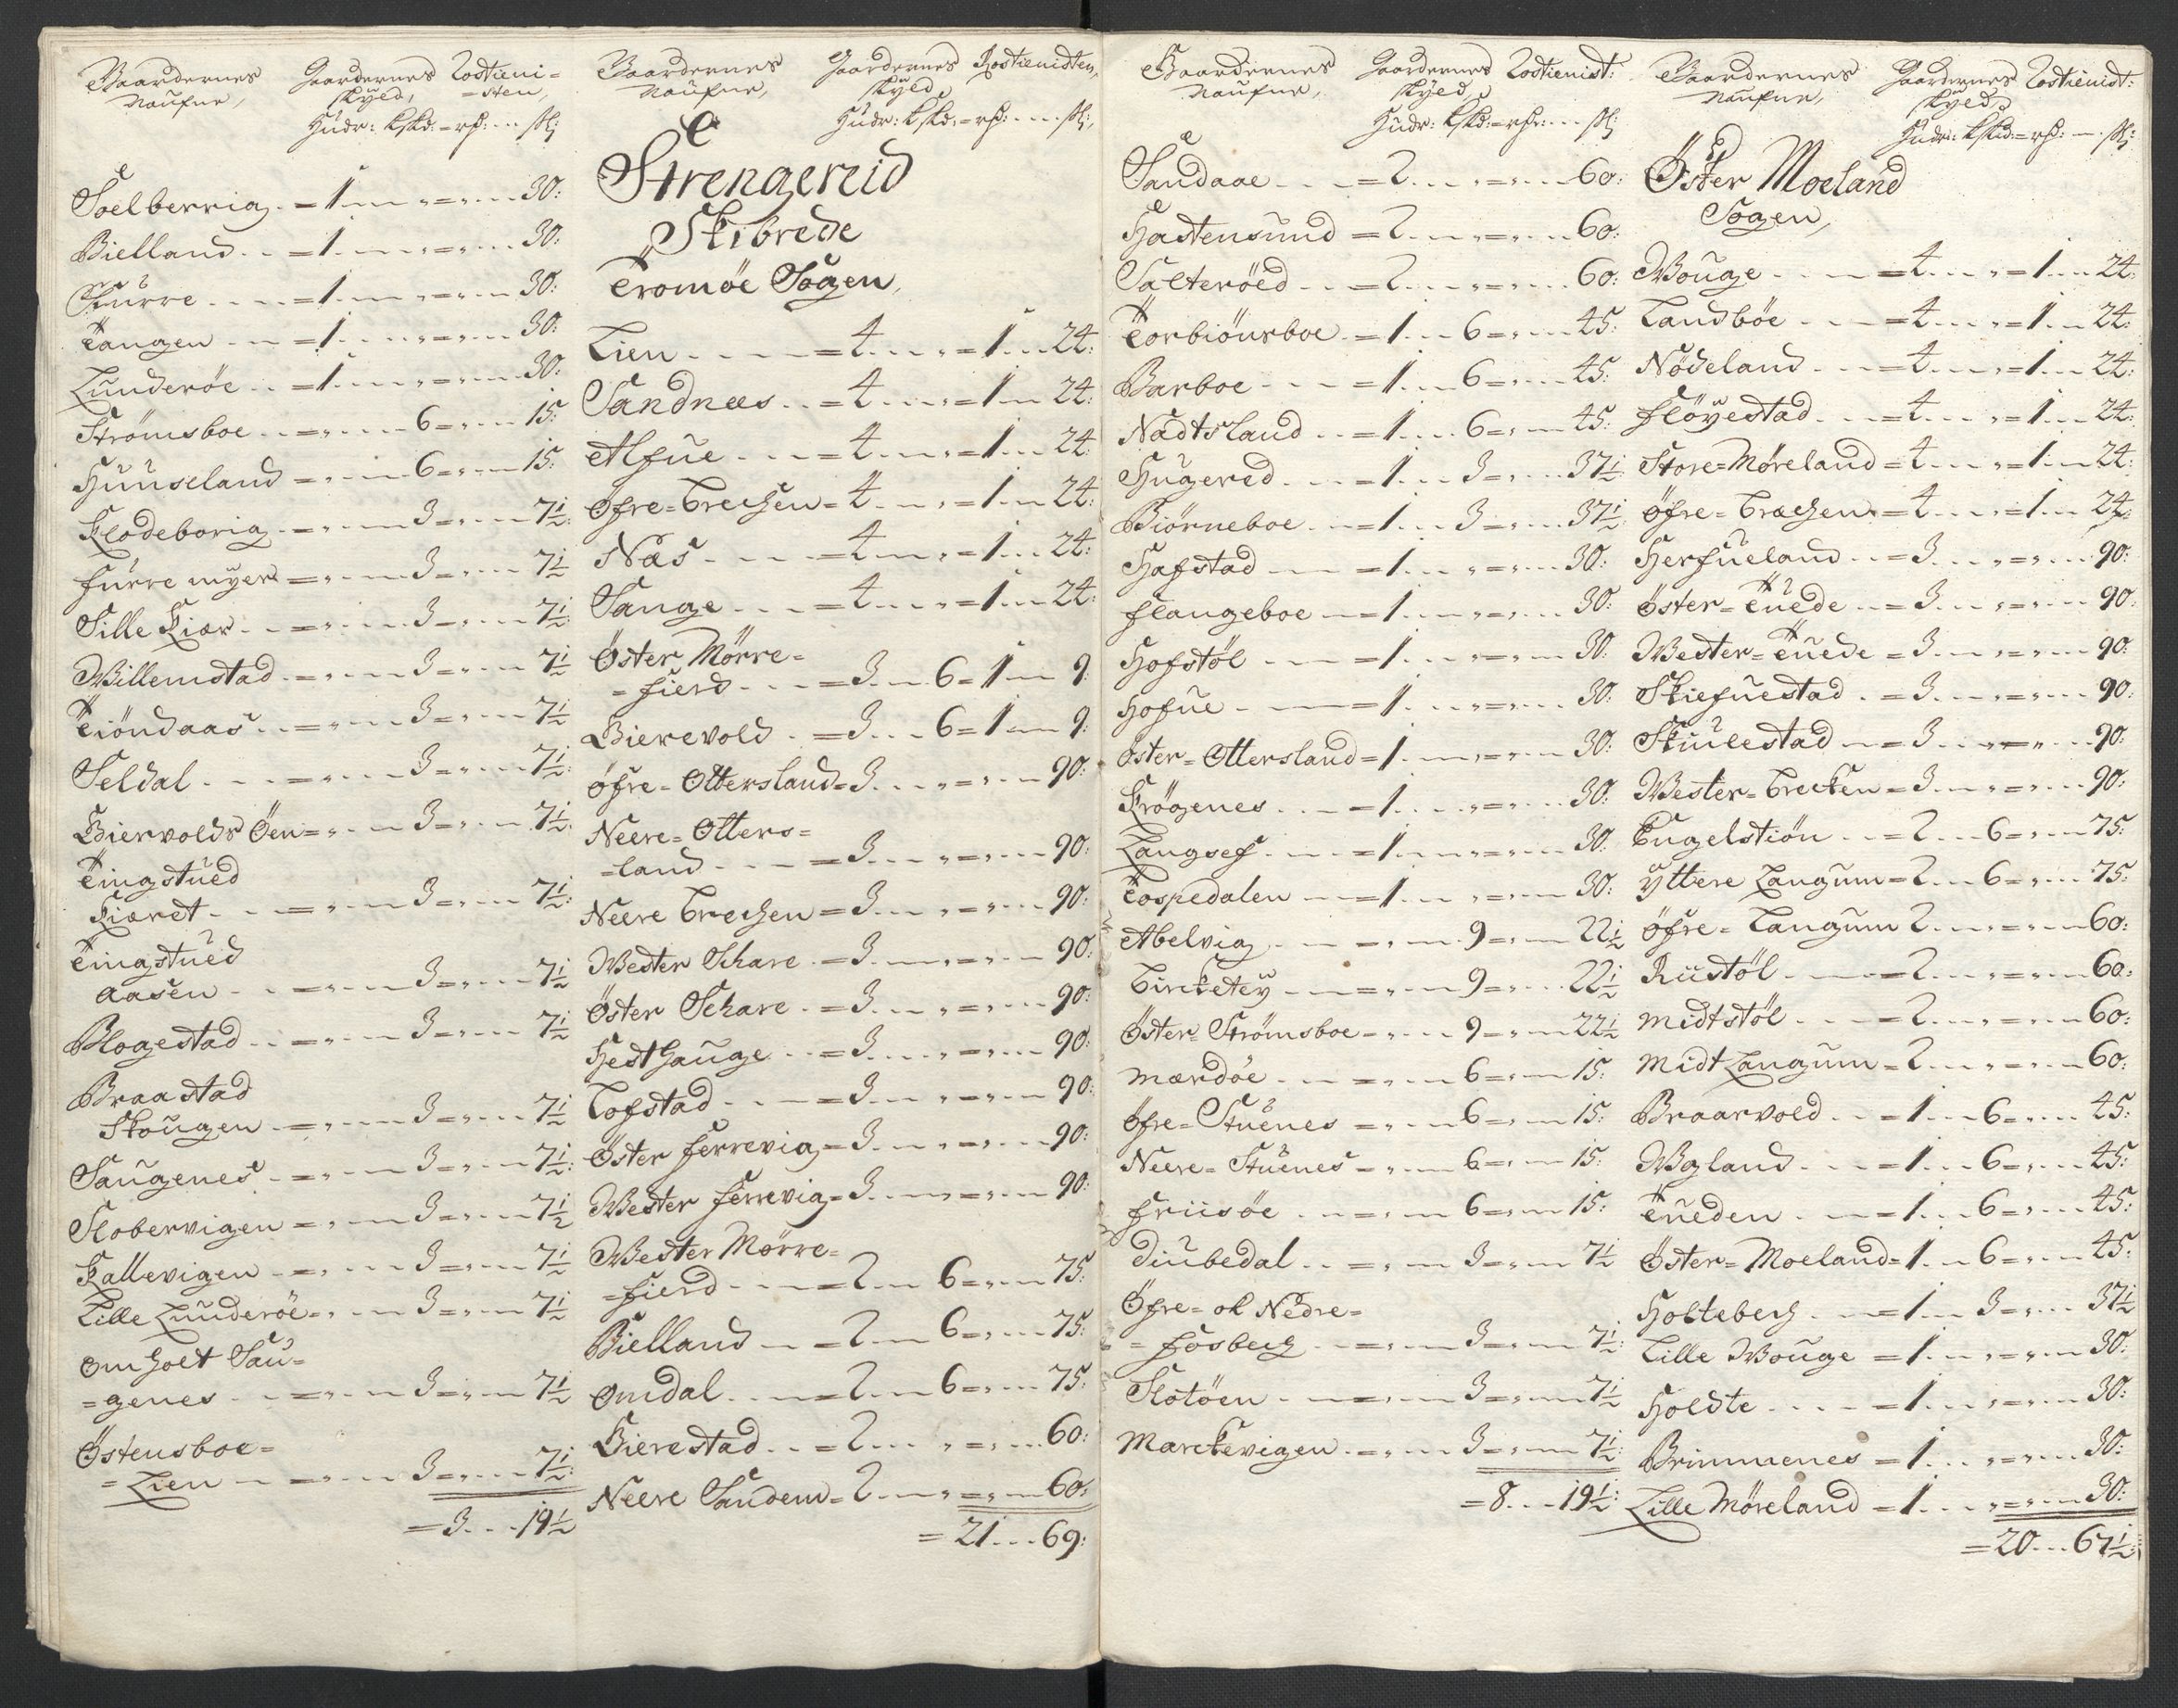 Gaardernes Gaardernes Rostieni=
Naufne, Skyld, =sten,
Hudr: kskd:=rd:...sk:
Soelberrig . . =1 . . „=„ . . 30:
Bielland . . =1 . . „=„ . . 30:
Skurre . . =1 . . „=„ . . 30:
Tangen . . =1 . . „=„ . . 30:
Lunderöe . . =1 . . „=„ . . 30:
Strömsboe . . =„ . . 6=„ . . 15:
Huuseland . . =„ . . 6=„ . . 15:
Klodeborig . . =„ . . 3=„ . . 7½:
Furre myer =„ . . 3=„ . . 7½
Sille Kier . . =„ . . 3=„ . . 7½:
Willemstad . . =„ . . 3=„ . . 7½
Tiöndaas . . =„ . . 3=„ . . 7½
Seldal . . =„ . . 3=„ . . 7½:
Biervolds Öen=„ . . 3=„ . . 7½:
Tingstued
Kiæret . . =„ . . 3=„ . . 7½:
Tingstued
Aasen . . =„ . . 3=„ . . 7½
Blogestad . . =„ . . 3=„ . . 7½
Braastad
Skougen . . =„ . . 3=„ . . 7½
Saugenes . . =„ . . 3=„ . . 7½:
Slobervigen =„ . . 3=„ . . 7½
Kallevigen . . =„ . . 3=„ . . 7½
Lille Lunderöe=„ . . 3=„ . . 7½
Omholt Sau=
=genes . . =„ . . 3=„ . . 7½
Östensboe=
=Lien . . =„ . . 3=„ . . 7½:
=3 . . 19½
Gaardernes Gaardernes Rostienisten,
Naufne, Skyld,
Hudr: kskd:=rd:....sk:,
Strengereid
Skibrede
Tromöe Sogen,
Lien . . =4 . . „=1 . . 24:
Sandnæs . . =4 . . „=1 . . 24:
Alfue . . =4 . . „=1 . . 24
Öfre=Brechen=4 . . „=1 . . 24:
Næs . . =4 . . „=1 . . 24:
Sange . . =4 . . „=1 . . 24:
Öster Mörre=
=fierd . . =3 . . 6=1 . . 9:
Bierevold . . =3 . . 6=1 . . 9:
Öfre=Ottersland=3 . . „=„ . . 90:
Neere=Otters=
=land . . =3 . . „=„ . . 90:
Neere Brechen=3 . . „=„ . . 90:
Wester Schare . =3 . . „=„ . . 90:
Öster Schare . =3 . . „=„ . . 90:
Hesthauge . . =3 . . „=„ . . 90:
Tofstad . . =3 . . „=„ . . 90:
Öster ferrevig=3 . . „=„ . . 90:
Wester ferrevig=3 . . „=„ . . 90:
Wester Mörre=
=fierd . . =2 . . 6=„ . . 75:
Bielland . . =2 . . 6=„ . . 75:
Omdal . . =2 . . 6=„ . . 75:
Bierestad . . =2 . . „=„ . . 60:
Neere Sandem=2 . . „=„ . . 60:
=21 . . . 69:
Gaardernes Gaardernes Rostienist:
Naufne, Skyld,
Hudr: kskd:=rdr:...sk:
Sandaae . . =2 . . „=„ . . 60:
Hastensund =2 . . „=„ . . 60:
Salteröed . . =2 . . „=„ . . 60:
Torbiönsboe =1 . . 6=„ . . 45:
Barboe . . =1 . . 6=„ . . 45:
Nadtsland . . =1 . . 6=„ . . 45:
Hugered . . =1 . . 3=„ . . 37½
Biörneboe . . =1 . . 3=„ . . 37½
Hafstad . . =1 . . „=„ . . 30:
flangeboe . . =1 . . „=„ . . 30:
Hofstöl . . =1 . . „=„ . . 30:
Hofue . . =1 . . „=„ . . 30:
Öster=Ottersland=1 . . „=„ . . 30:
Krögenes . . =1 . . „=„ . . 30:
Langsef . . =1 . . „=„ . . 30:
Tospedalen . . =1 . . „=„ . . 30:
Abelvig . . =„ . . 9=„ . . 22½
Bircketey . . =„ . . 9=„ . . 22½
Öster=Strömsboe=„ . . 9=„ . . 22½
Mærdöe . . =„ . . 6=„ . . 15:
Öfre=Stuenes =„ . . 6=„ . . 15:
Neere=Stuenes=„ . . 6=„ . . 15:
Friisöe . . =„ . . 6=„ . . 15:
Diubedal . . =„ . . 3=„ . . 7½
Öfre=ok Nedre=
=fosbech . . =„ . . 3=„ . . 7½:
Slotöen . . =„ . . 3=„ . . 7½
Marckevigen . . =„ . . 3=„ . . 7½:
=8 . . . 19½:
Gaardernes Gaardernes Rostienist:
Naufne, Skyld,
Hudr: kskd:=rd:...sk:
Öster Moeland
Sogen,
Wouge . . =4 . . „=1 . . 24:
Landböe . . =4 . . „=1 . . 24:
Nödeland . . =4 . . „=1 . . 24:
flöyestad . . =4 . . „=1 . . 24:
Store=Möreland=4 . . „=1 . . 24:
Öfre=Bræchen=4 . . „=1 . . 24:
Herfueland . . =3 . . „=„ . . 90:
Öster=Tuede . . =3 . . „=„ . . 90:
Wester=Tuede =3 . . „=„ . . 90:
Skiefuestad . . =3 . . „=„ . . 90:
Skiulestad . . =3 . . „=„ . . 90:
Wester=Brecken=3 . . „=„ . . 90:
Engelstiön . . =2 . . 6=„ . . 75:
Yttere Langum=2 . . 6=„ . . 75:
Öfre=Langum 2 . . „=„ . . 60:
Riistöl . . =2 . . „=„ . . 60:
Midtstöl . . =2 . . „=„ . . 60:
Midt Langum=2 . . „=„ . . 60:
Braarvold . . =1 . . 6=„ . . 45:
Wogland . . =1 . . 6=„ . . 45:
Tueden . . =1 . . 6=„ . . 45:
Öster=Moeland=1 . . 6=„ . . 45:
Holtebech . . =1 . . 3=„ . . 37½
Lille Wouge =1 . . „=„ . . 30:
Holdte . . =1 . . „=„ . . 30:
Brimmenes =1 . . „=„ . . 30:
Lille Möreland =1 . . „=„ . . 30:
=20 . . . 67½: